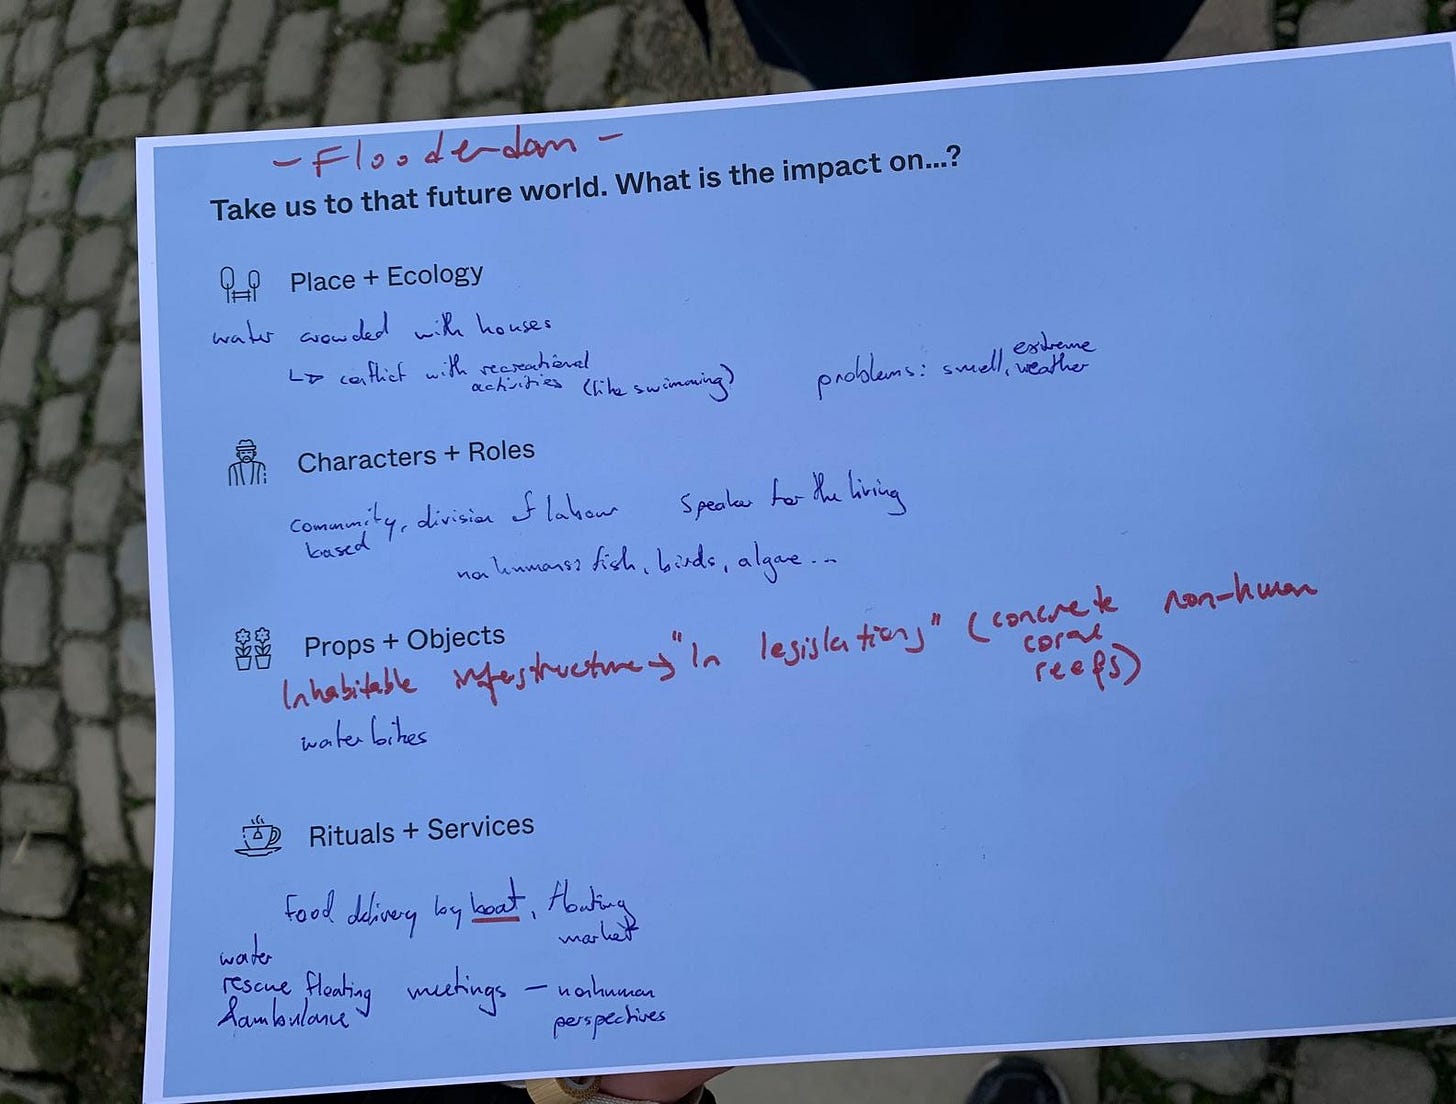 - Flooderdam -
Take us to that future world. What is the impact on...?
Place + Ecology
water crowded with houses
↳ conflict with recreational activities (like swimming)
problems: smell, extreme weather
Characters + Roles
community based, division of labour
Speaker for the living
nonhumans: fish, birds, algae...
Props + Objects
Inhabitable infrastructure → "In legislation" (concrete coral reefs) non-human
water bikes
Rituals + Services
Food delivery by boat, floating market
water rescue floating & ambulance
meetings - nonhuman perspectives